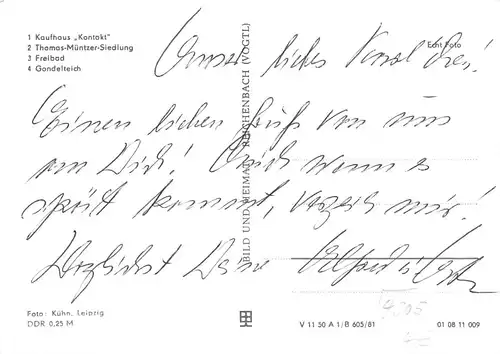 1 Kaufhaus „Kontakt"
2 Thomas-Müntzer-Siedlung
3 Freibad
4 Gondelteich
Echt Foto
Unser liebes
Einen lieben Gruß von uns
an Dich! Auch wenn es
spät kommt, verzeih mir!
Herzlichst Deine
BILD UND HEIMAT REICHENBACH (VOGTL)
Foto: Kühn, Leipzig
DDR 0,25 M
V 11 50 A 1/B 605/81
01 08 11 009